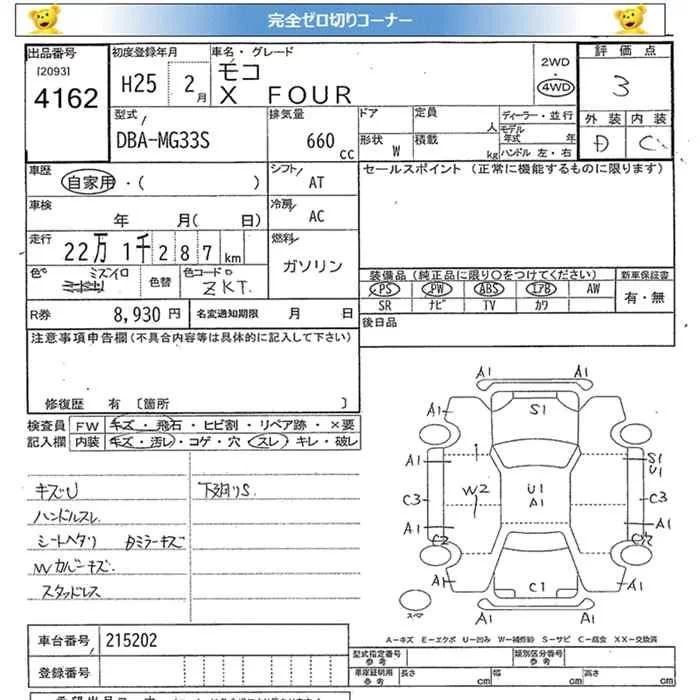 完全ゼロ切りコーナー
出品番号 初度登録年月 車名・グレード 評価点
[2093] モコ 2WD
4162 H25 2月 X FOUR 4WD 3
型式 排気量 ドア 定員 人 ディーラー・並行 外装 内装
DBA-MG33S 660 cc 形状 W 積載 kg モデル年式 年 ハンドル 左・右 D C
車歴 シフト セールスポイント (正常に機能するものに限ります)
自家用・( ) AT
車検 冷房
年 月( 日) AC
走行 燃料
22万 1千 287 km ガソリン
色 ミズイロ 色替 色コード ZKT 装備品(純正品に限り○をつけてください) 新車保証書
PS PW ABS エアB AW 有・無
SR ナビ TV カワ
R券 8,930 円 名変通知期限 月 日 後日品
注意事項申告欄(不具合内容等は具体的に記入して下さい)
修復歴 有 [箇所 ]
検査員 FW キズ・飛石・ヒビ割・リペア跡・×要
記入欄 内装 キズ・汚レ・コゲ・穴・スレ・キレ・破レ
キズU 下廻りS
ハンドルスレ
シートヘタリ
Wカバーキズ
スタッドレス
A1 A1
A1 S1 A1
A1 S1
U1
C3 W2 U1 C3
A1
A1 A1
C2
A1 A1
C1
スペア A1 A1
A-キズ E-エクボ U-凹み W-補修跡 S-サビ C-腐食 XX-交換済
車台番号 215202 型式指定番号 参考 類別区分番号 参考
登録番号 車庫証明用 参考 長さ cm 幅 cm 高さ cm